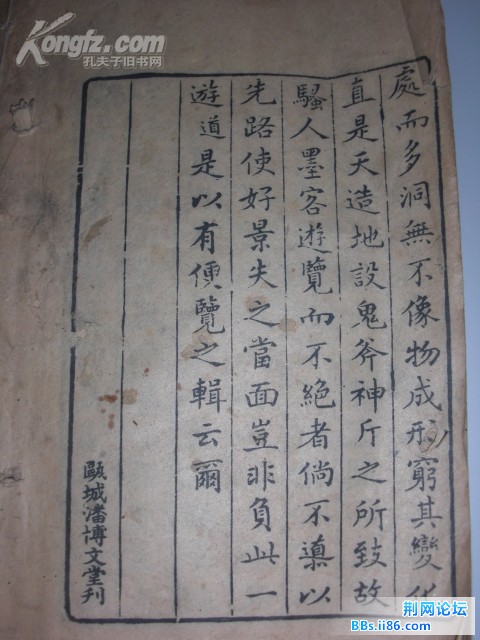 Kongfz.com
孔夫子旧书网
處而多洞無不像物成形窮其變化
直是天造地設鬼斧神斤之所致故
騷人墨客遊覽而不絕者倘不導以
先路使好景失之當面豈非負此一
遊道是以有便覽之輯云爾
甌城潘博文堂刊
荆网论坛
BBs.ii86.com